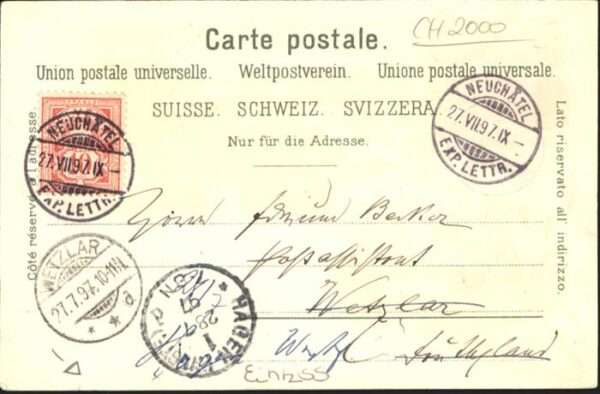 CH 2000
Carte postale.
Union postale universelle. Weltpostverein. Unione postale universale.
SUISSE. SCHWEIZ. SVIZZERA
Nur für die Adresse.
Côté réservé à l'adresse.
Lato riservato all' indirizzo.
NEUCHÂTEL
27.VII.97.IX –
EXP. LETTR.
NEUCHÂTEL
27.VII.97.IX –
EXP. LETTR.
Herrn Edmund Becker
Postassistent
Wetzlar
Deutschland
WETZLAR
27.7.97.10-11N.
* * a
HAGEN
28
97
8-9N